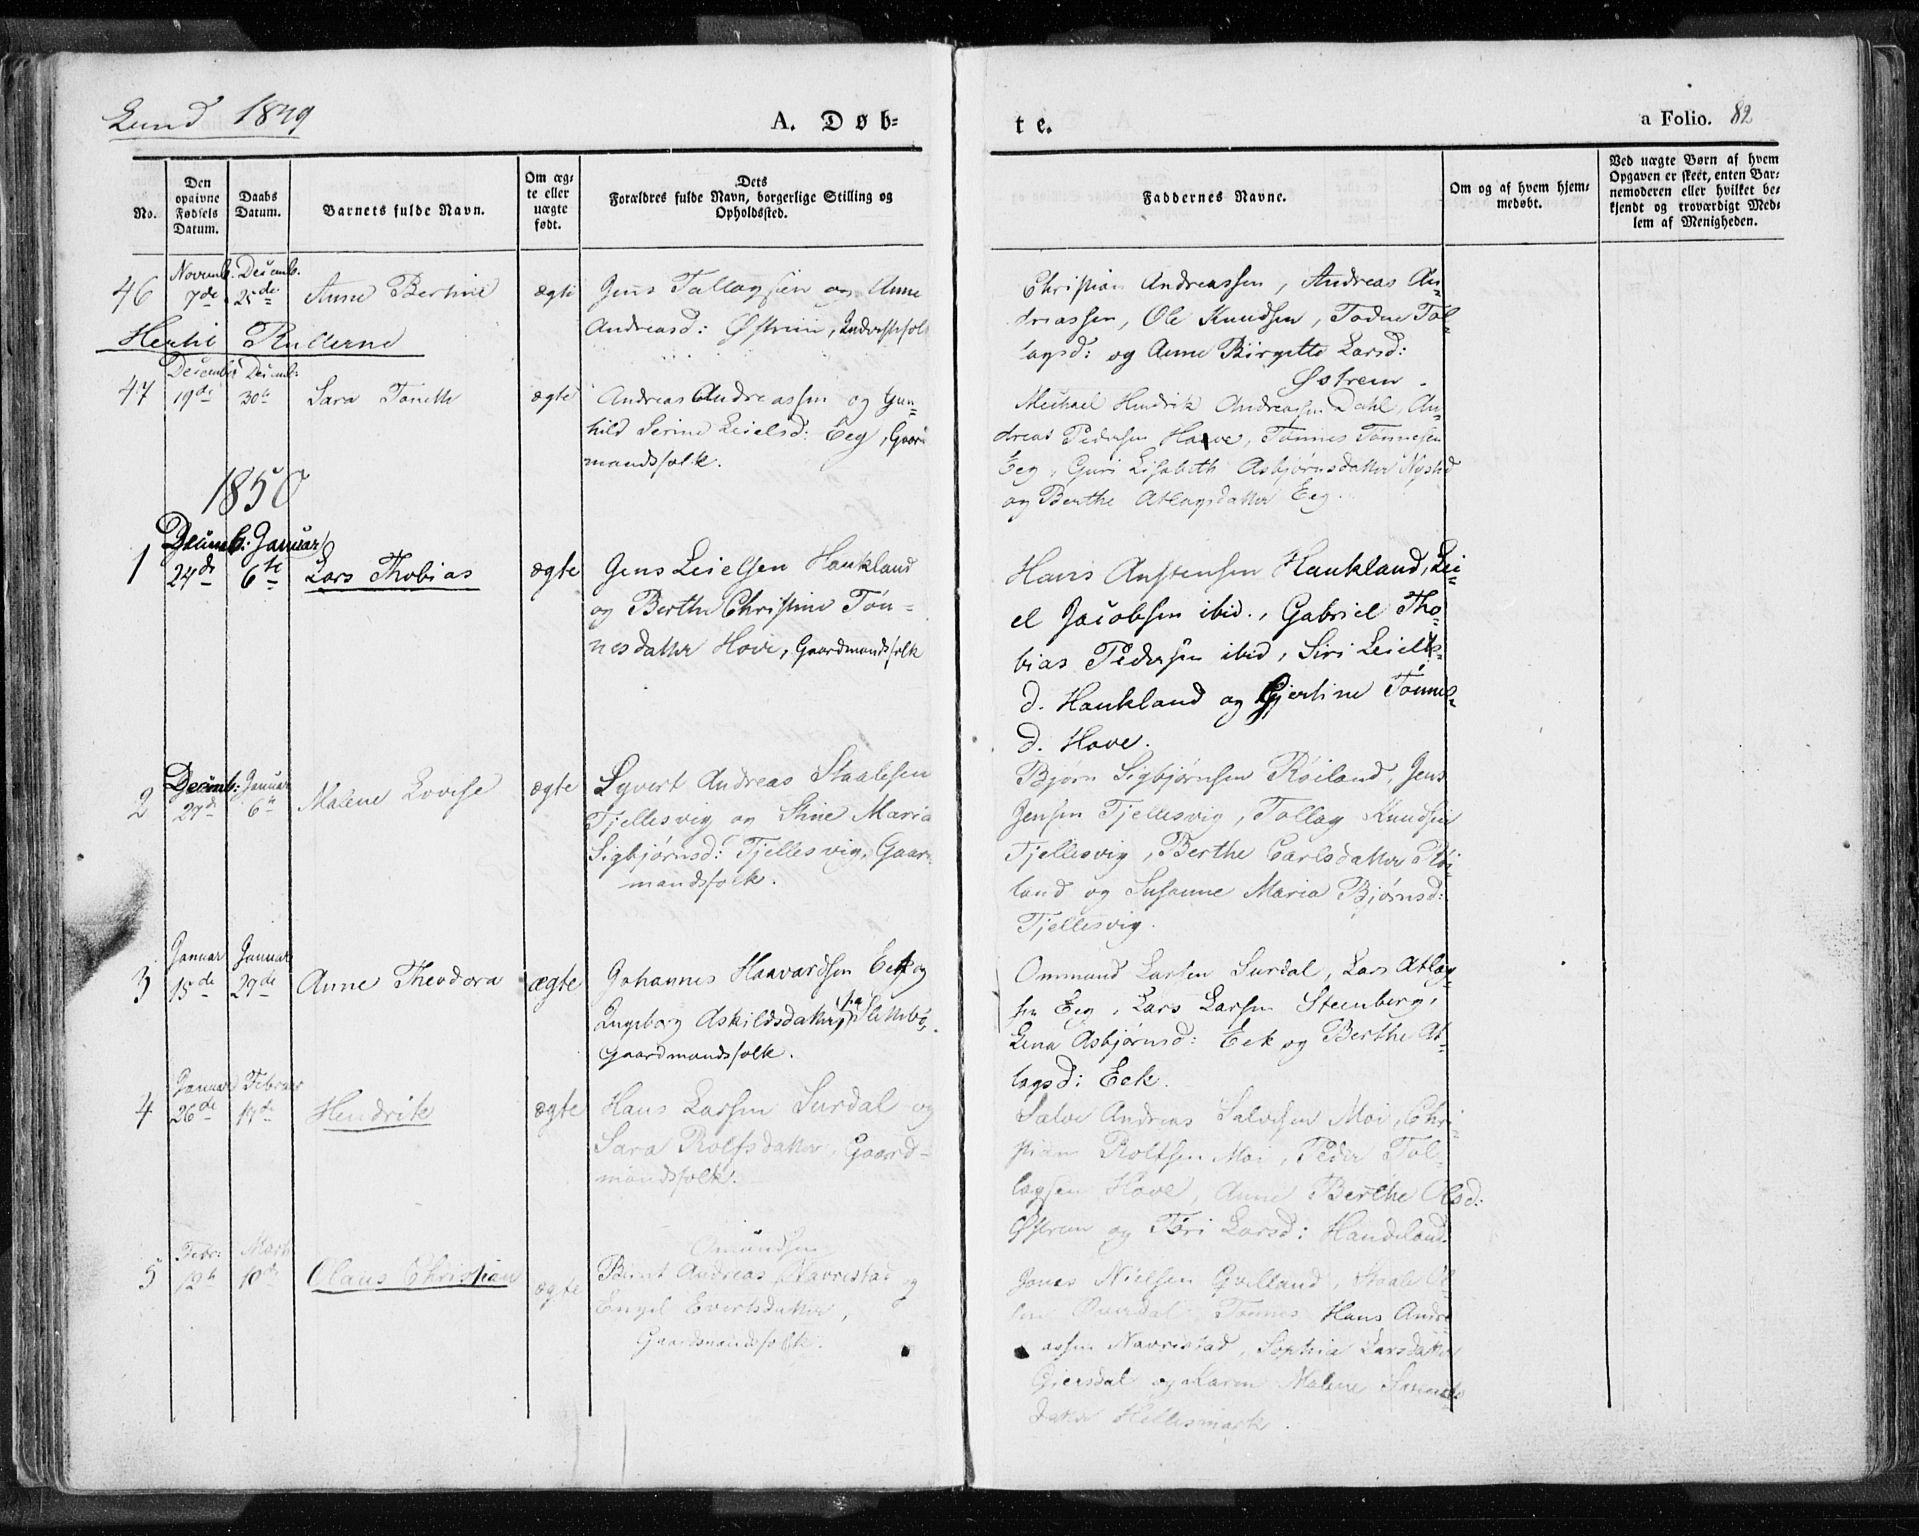 Lund 1849
A. Døb-
te.
a Folio. 82
No.
Den
opgivne
Fødsels
Datum.
Daabs
Datum.
Barnets fulde Navn.
Om æg-
te eller
uægte
født.
Dets
Forældres fulde Navn, borgerlige Stilling og
Opholdssted.
Faddernes Navne.
Om og af hvem hjem-
medøbt.
Ved uægte Børn af hvem
Opgaven er skeet, enten Bar-
nemoderen eller hvilket be-
kjendt og troværdigt Med-
lem af Menigheden.
46
Novemb.
7de
Decemb.
25de
Anne Bertine
ægte
Jens Tallagsen og Anne
Andreasd: Østrem, Inderstfolk
Christian Andreassen, Andreas An-
dreassen, Ole Knudsen, Todne Tol-
lagsd: og Anne Birgitte Larsd:
Østrem.
Hertil Rullerne
47
Decemb:
19de
Decemb:
30te
Sara Toneth
ægte
Andreas Andreassen og Gun-
hild Serine Leielsd: Eeg, Gaard
mandsfolk.
Michael Hendrik Andreassen Dahl, An-
dreas Pedersen Hove, Tønnes Tønnesen
Eeg, Guri Lisabeth Asbjørnsdatter Nysted
og Berthe Atlagsdatter Eeg.
1850
1
Decemb:
24de
Januar
6te
Lars Thobias
ægte
Jens Leielsen Haukland
og Berthe Christine Tøn-
nesdatter Hove, Gaardmandsfolk
Hans Anstensen Haukland, Lei-
el Jacobsen ibid., Gabriel Tho-
bias Pedersen ibid, Siri Leiels-
d. Haukland og Gjertine Tønnes-
d. Hove.
2
Decemb:
27de
Januar
6te
Malene Lovise
ægte
Syvert Andreas Staalesen
Tjellesvig og Stine Maria
Sigbjørnsd: Tjellesvig, Gaard-
mandsfolk.
Bjørn Sigbjørnsen Røiland, Jens
Jensen Tjellesvig, Tollag Knudsen
Tjellesvig, Berthe Carlsdatter Røi-
land og Susanne Maria Bjørnsd:
Tjellesvig.
3
Januar
15de
Januar
27de
Anne Theodora
ægte
Johannes Haavardsen Eek og
Ingeborg Askildsdatter,
Gaardmandsfolk.
Ommund Larsen Surdal, Lars Atlag-
sen Eeg, Lars Larsen Steinberg,
Lena Asbjørnsd: Eek og Berthe At-
lagsd: Eek.
4
Januar
26de
Februar
17de
Hendrik
ægte
Hans Larsen Surdal og
Sara Rolfsdatter, Gaard-
mandsfolk.
Salve Andreas Salvesen Moi, Chri-
stian Rolfsen Moi, Peder Tol-
lagsen Hove, Anne Berthe Olsd:
Østrem og Tøri Larsd: Handeland.
5
Febr:
12te
Marts
10de
Olaus Christian
ægte
Omundsen
Berent Andreas Navrestad og
Engel Evertsdatter,
Gaardmandsfolk.
Jonas Nielsen Qvelland, Staale Ol-
sen Tønnes Hans Andre-
assen Navrestad, Sophia Larsdatter
Gjersdal og Karen Malene
datter Hellesmark.